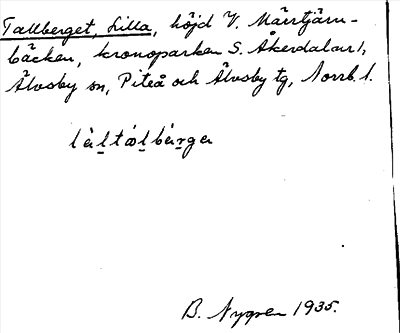 Tallberget, Lilla, höjd V. Märrtjärn-
bäcken, kronoparken S. Åkerdalar 1,
Älvsby sn, Piteå och Älvsby tg, Norrb. l.
B. Nygren 1935.